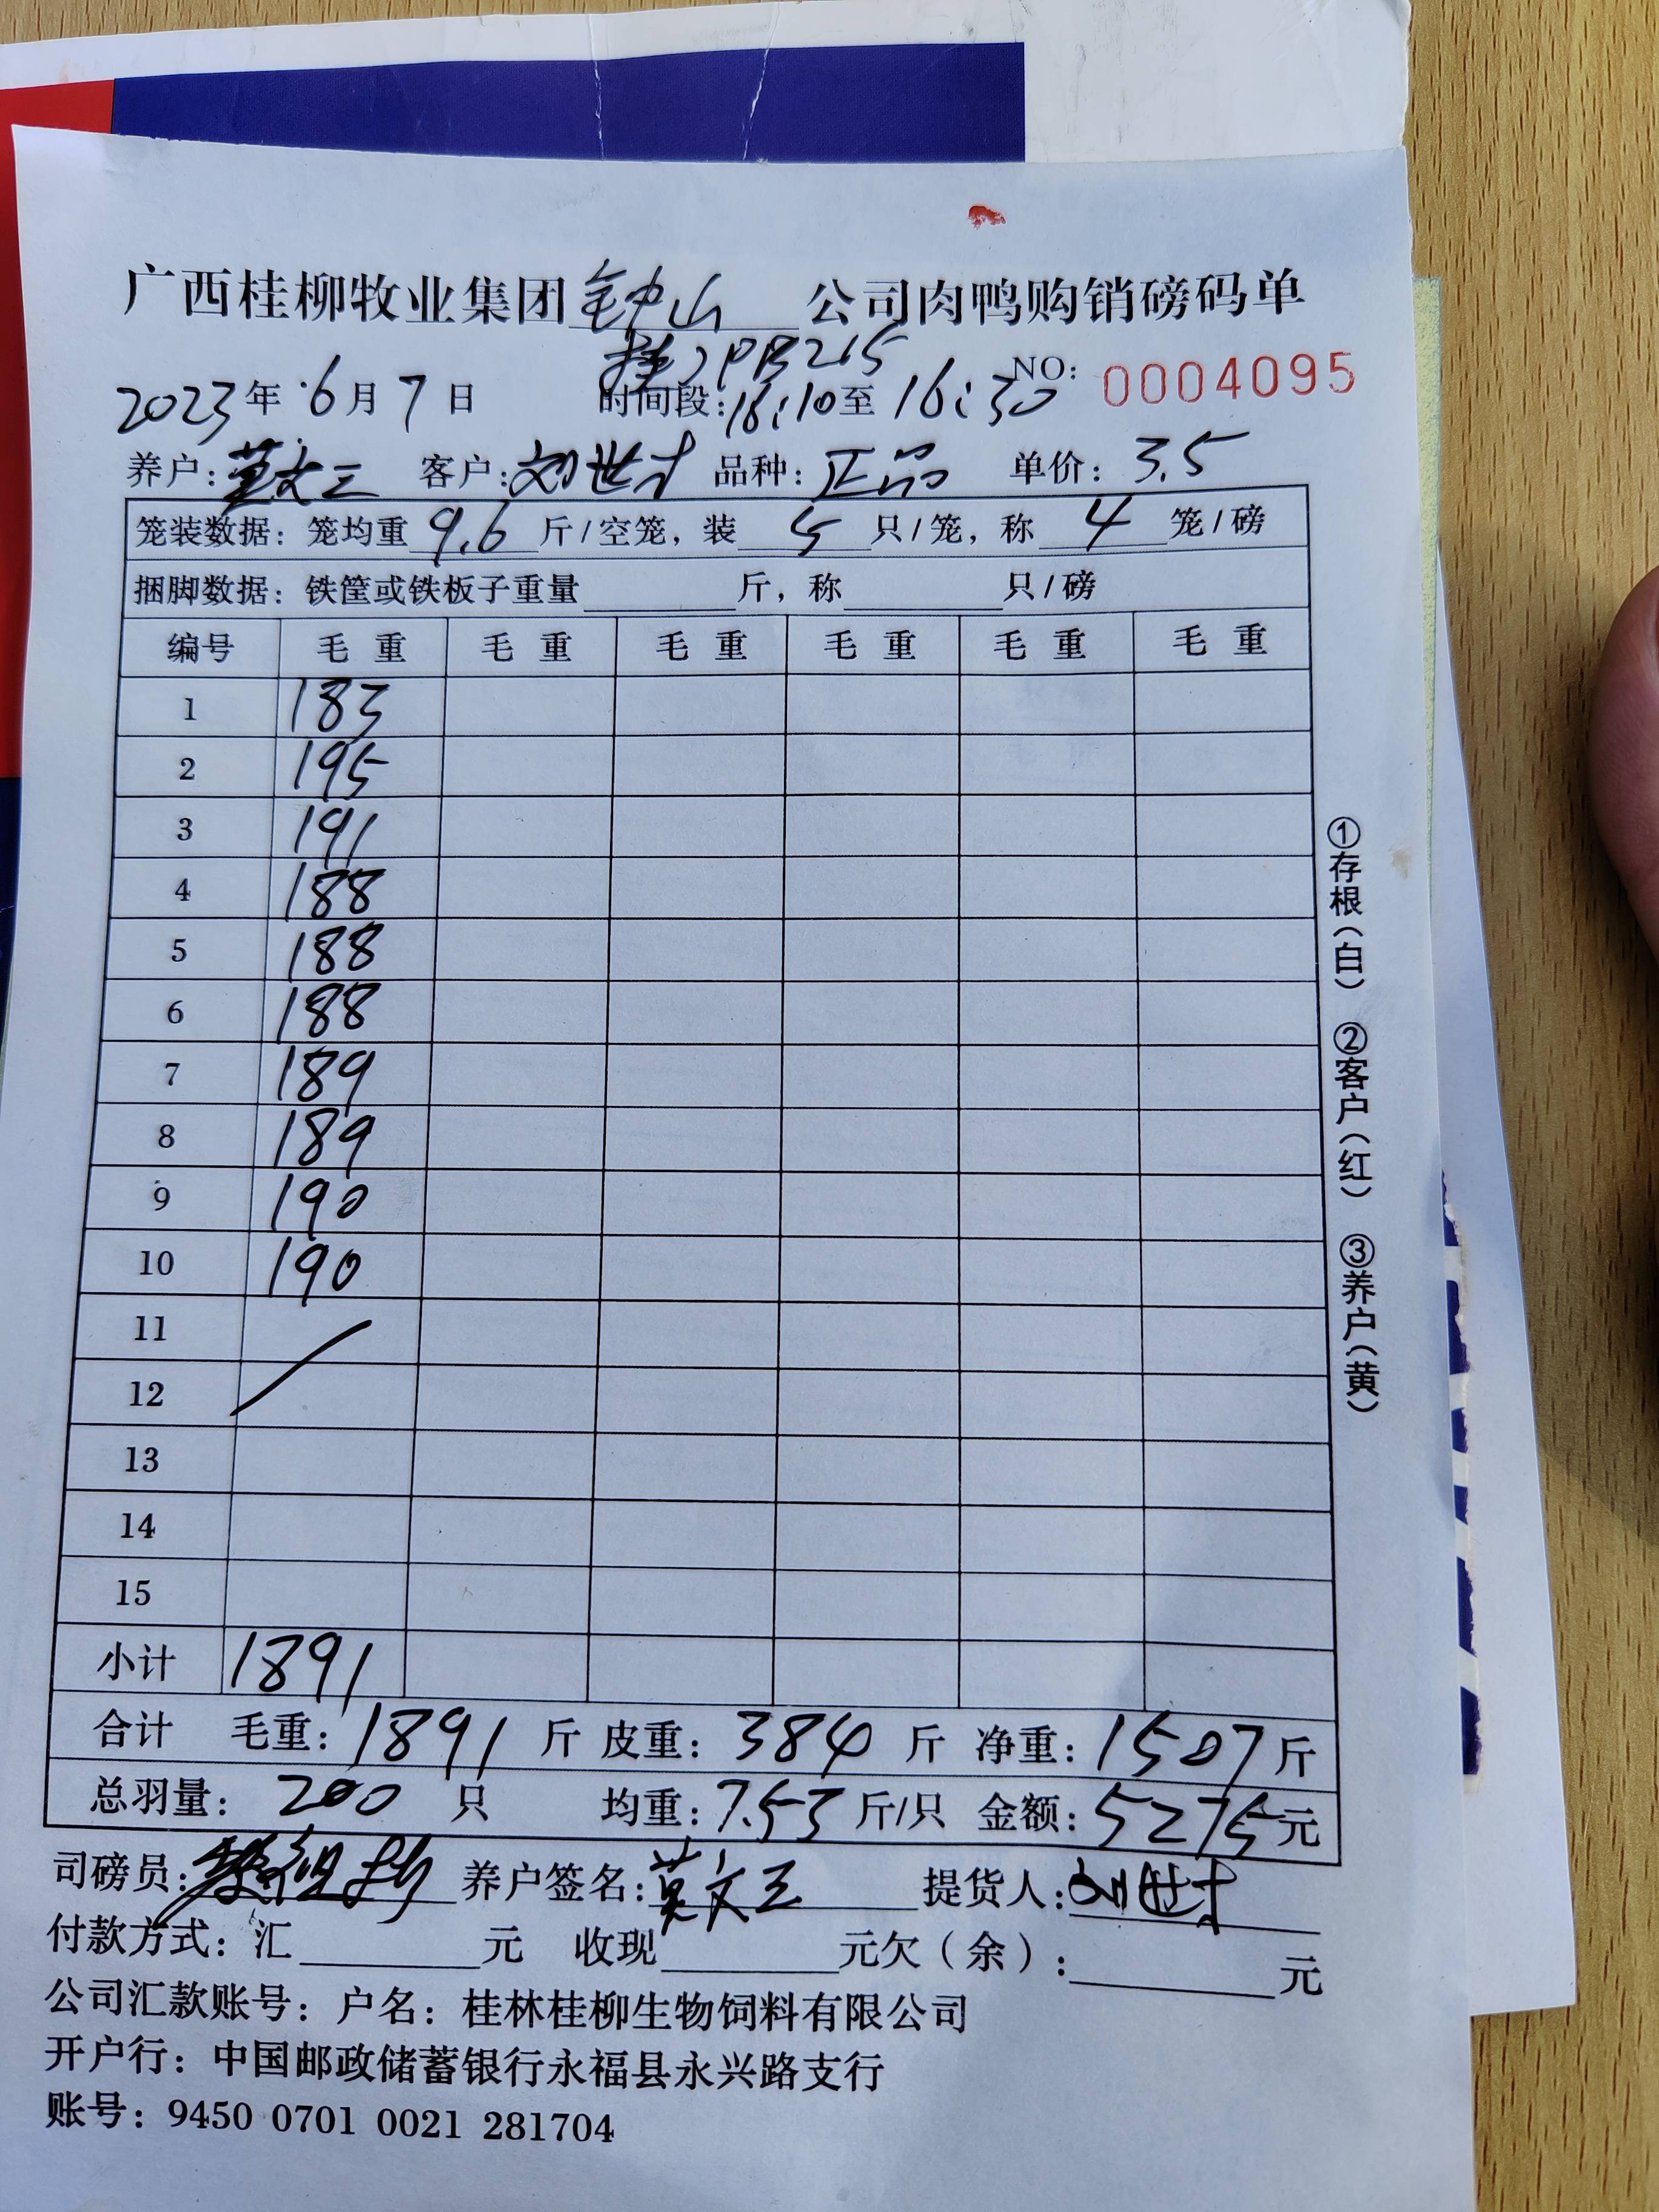 广西桂柳牧业集团钟山公司肉鸭购销磅码单
桂JPB215
NO: 0004095
2023年6月7日 时间段:16:10至16:30
养户: 莫文三 客户: 刘世才 品种: 正品 单价: 3.5
笼装数据: 笼均重 9.6 斤/空笼, 装 5 只/笼, 称 4 笼/磅
捆脚数据: 铁筐或铁板子重量 斤, 称 只/磅
编号 毛重 毛重 毛重 毛重 毛重 毛重
1 183
2 195
3 191
4 188
5 188
6 188
7 189
8 189
9 190
10 190
11
12
13
14
15
小计 1891
合计 毛重: 1891 斤 皮重: 384 斤 净重: 1507 斤
总羽量: 200 只 均重: 7.53 斤/只 金额: 5275元
司磅员: 养户签名: 莫文三 提货人: 刘世才
付款方式: 汇 元 收现 元欠(余): 元
公司汇款账号: 户名: 桂林桂柳生物饲料有限公司
开户行: 中国邮政储蓄银行永福县永兴路支行
账号: 9450 0701 0021 281704
①存根(白) ②客户(红) ③养户(黄)